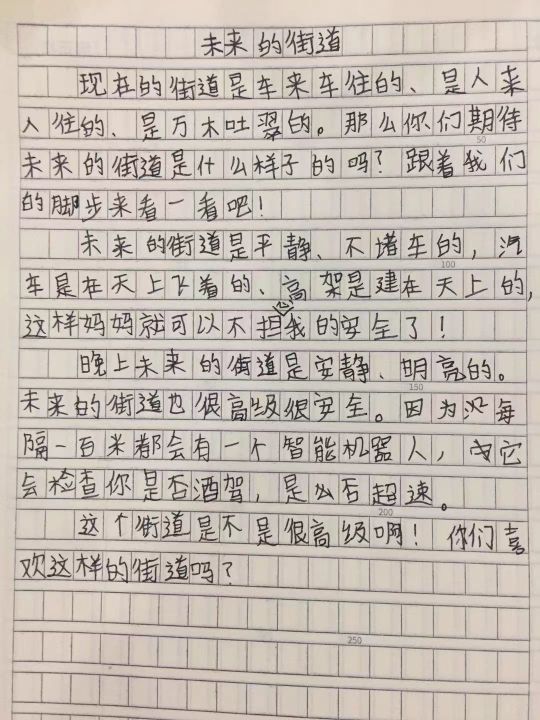 未来的街道
现在的街道是车来车往的、是人来
人往的、是万木吐翠的。那么你们期待
50
未来的街道是什么样子的吗？跟着我们
的脚步来看一看吧！
未来的街道是平静、不堵车的，汽
100
车是在天上飞着的、高架是建在天上的，
这样妈妈就可以不担心我的安全了！
晚上未来的街道是安静、明亮的。
150
未来的街道也很高级很安全。因为每
隔一百米都会有一个智能机器人，它
会检查你是否酒驾，是否超速。
200
这个街道是不是很高级啊！你们喜
欢这样的街道吗？
250